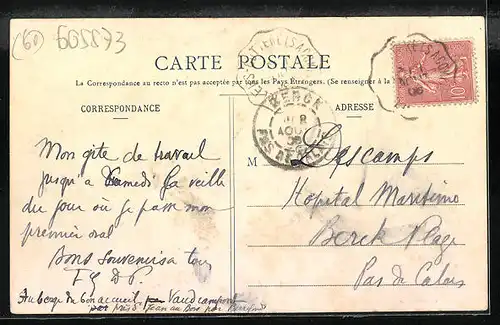 (60) 605573
CARTE POSTALE
La Correspondance au recto n'est pas acceptée par tous les Pays Étrangers. (Se renseigner à la
CORRESPONDANCE
ADRESSE
BERCK
AOUT
PAS DE CALAIS
10
M Descamps
Hôpital Maritime
Berck Plage
Pas de Calais
Mon gîte de travail
jusqu'à Samedi La veille
du jour où je passe mon
premier oral
Bons souvenirs à tous
Auberge du bon accueil Vaudrampont
près St Jean au Bois par Pierrefonds